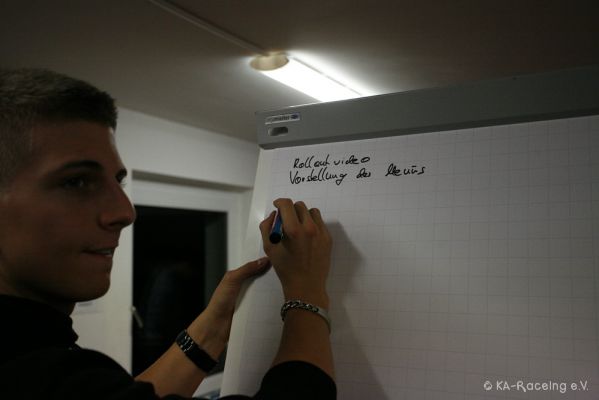 Rollout video
Vorstellung des Menüs
© KA-RaceIng e.V.